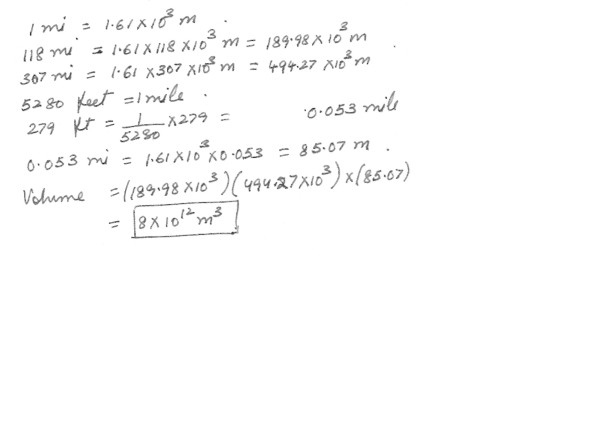 1 mi = 1.61×10³ m .
118 mi = 1.61×118×10³ m = 189.98×10³ m .
307 mi = 1.61×307×10³ m = 494.27×10³ m
5280 feet = 1 mile .
279 ft = 1/5280 ×279 = 0.053 mile
0.053 mi = 1.61×10³×0.053 = 85.07 m .
Volume = (189.98×10³)(494.27×10³)×(85.07)
= 8×10¹² m³